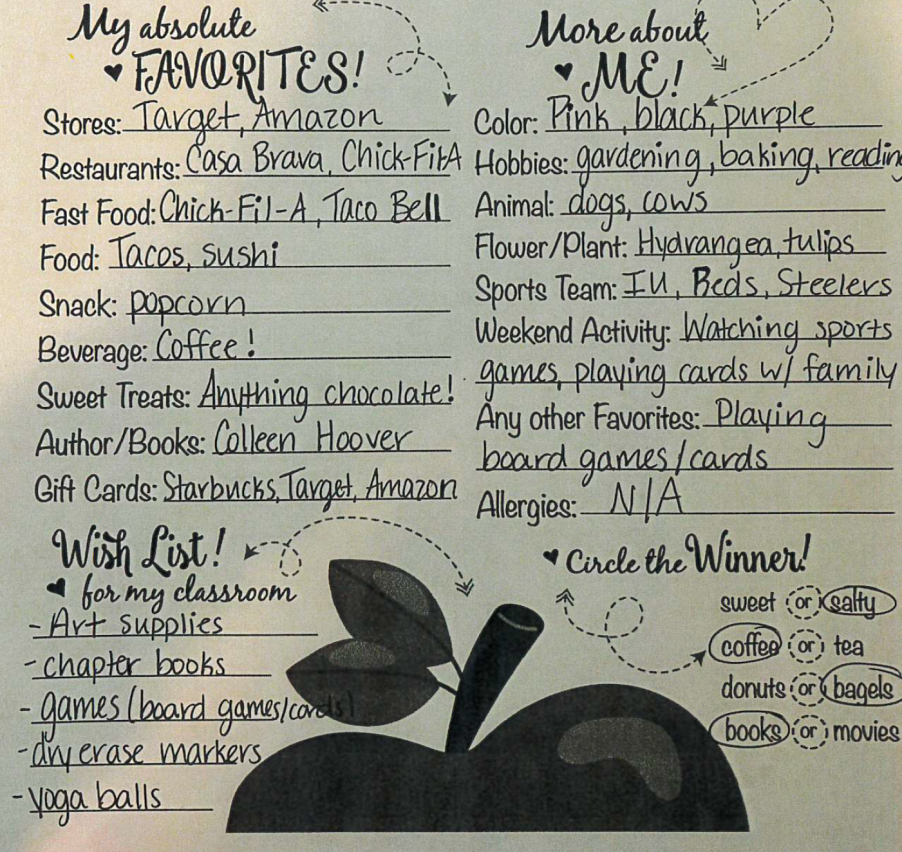 My absolute
FAVORITES!
Stores: Target, Amazon
Restaurants: Casa Brava, Chick-Fil-A
Fast Food: Chick-Fil-A, Taco Bell
Food: Tacos, sushi
Snack: popcorn
Beverage: Coffee!
Sweet Treats: Anything chocolate!
Author/Books: Colleen Hoover
Gift Cards: Starbucks, Target, Amazon
More about
ME!
Color: Pink, black, purple
Hobbies: gardening, baking, reading
Animal: dogs, cows
Flower/Plant: Hydrangea, tulips
Sports Team: IU, Reds, Steelers
Weekend Activity: Watching sports
games, playing cards w/ family
Any other Favorites: Playing
board games/cards
Allergies: N/A
Wish List!
for my classroom
- Art supplies
- chapter books
- games (board games/cards)
- dry erase markers
- yoga balls
Circle the Winner!
sweet or salty
coffee or tea
donuts or bagels
books or movies